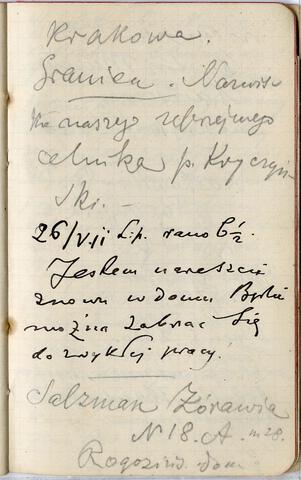 Krakowa.
Granica. Nazwis-
ko naszego uprzejmego
celnika p. Kryczyń-
ski. –
26/VII Lip. rano 6½.
Jestem nareszcie
znowu w domu Będzie
można zabrać się
do zwykłej pracy.
Salzman Żórawia
N 18. A. m 28.
Rogoziń. dom